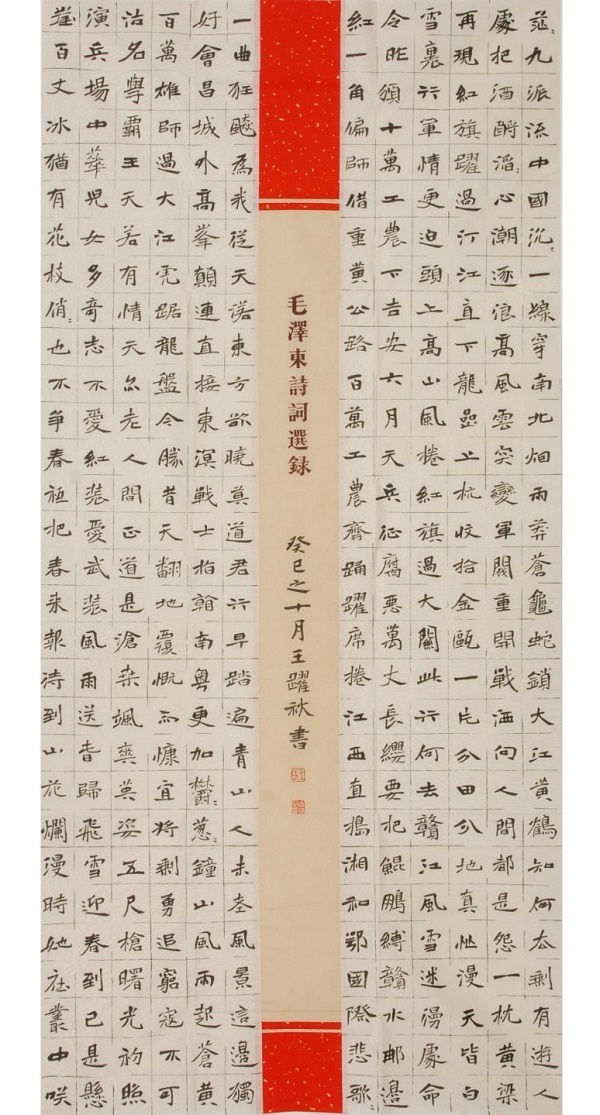 茫〻九派流中國沉〻一線穿南北烟雨莽蒼龜蛇鎖大江黃鶴知何去剩有遊人
處把酒酹滔〻心潮逐浪高風雲突變軍閥重開戰洒向人間都是怨一枕黃梁
再現紅旗躍過汀江直下龍嵒上杭收拾金甌一片分田分地真忙漫天皆白
雪裏行軍情更迫頭上高山風捲紅旗過大關此行何去贛江風雪迷漫處命
令昨頒十萬工農下吉安六月天兵征腐惡萬丈長纓要把鯤鵬縛贛水那邊
紅一角偏師借重黃公路百萬工農齊踊躍席捲江西直搗湘和鄂國際悲歌〻
毛澤東詩詞選録
癸巳之十月王躍秋書
一曲狂飈為我從天落東方欲曉莫道君行早踏遍青山人未老風景這邊獨
好會昌城外高峯顛連直接東溟戰士指看南粵更加欝〻葱〻鐘山風雨起蒼黃
百萬雄師過大江虎踞龍盤今勝昔天翻地覆慨而慷宜將剩勇追窮寇不可
沽名學霸王天若有情天亦老人間正道是滄桑颯爽英姿五尺槍曙光初照
演兵場中華兒女多奇志不愛紅裝愛武裝風雨送春歸飛雪迎春到已是懸
崖百丈冰猶有花枝俏〻也不爭春祇把春來報待到山花爛漫時她在叢中咲